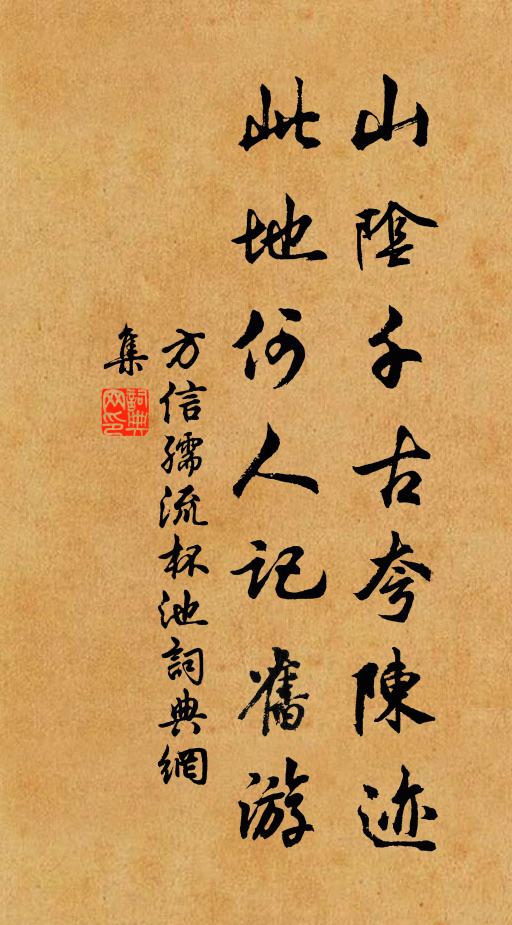 山陰千古夸陳迹
此地何人記舊游
方信孺流杯池詞典網
集
詞典網印